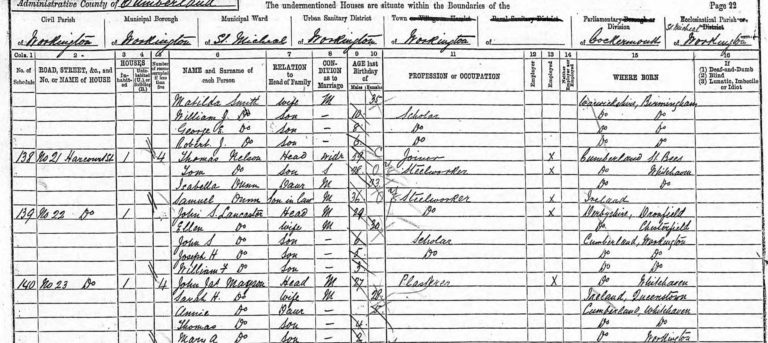 Administrative County of Cumberland The undermentioned Houses are situate within the Boundaries of the Page 22
Civil Parish Municipal Borough Municipal Ward Urban Sanitary District Town or Village or Hamlet Rural Sanitary District Parliamentary Borough or Division Ecclesiastical Parish or District
of Workington of Workington of St Micheal of Workington of Workington of of Cockermouth of St Micheal Workington
Cols. 1 2 3 4 5 6 7 8 9 10 11 12 13 14 15 16
No. of Schedule ROAD, STREET, &c., and No. or NAME of HOUSE HOUSES Inhabited Uninhabited (U.) or Building (B.) Number of rooms occupied if less than five NAME and Surname of each Person RELATION to Head of Family CONDITION as to Marriage AGE last Birthday of Males Females PROFESSION or OCCUPATION Employer Employed Neither Employer nor Employed WHERE BORN If (1) Deaf-and-Dumb (2) Blind (3) Lunatic, Imbecile or Idiot
Matilda Smith wife M 35 Warwickshire, Birmingham
William J. Do son — 10 Scholar Do Do
George E. Do son — 8 Do Do Do
Robert J. Do son — 6 Do Do Do
138 No 21 Harcourt St 1 4 Thomas Nelson Head Widr Joiner X Cumberland St Bees
Tom Do son S Steelworker X Do Whitehaven
Isabella Dunn Daur M 33 Do Do
Samuel Dunn Son in Law M 36 Steelworker X Ireland
139 No 22 Do 1 John S. Lancaster Head M 29 Do X Derbyshire, Dronfield
Ellen Do wife M 30 Do Chesterfield
John S Do son — 6 Scholar Cumberland, Workington
Joseph H Do son — 5 Do Do Do
William F Do son — 3 Do Do
140 No 23 Do 1 4 John Jas Mayson Head M 27 Plasterer X Do Whitehaven
Sarah H. Do Wife M 28 Ireland, Queenstown
Annie Do Daur — Cumberland, Whitehaven
Thomas Do son — 4 Do Do
Mary A. Do Do Workington